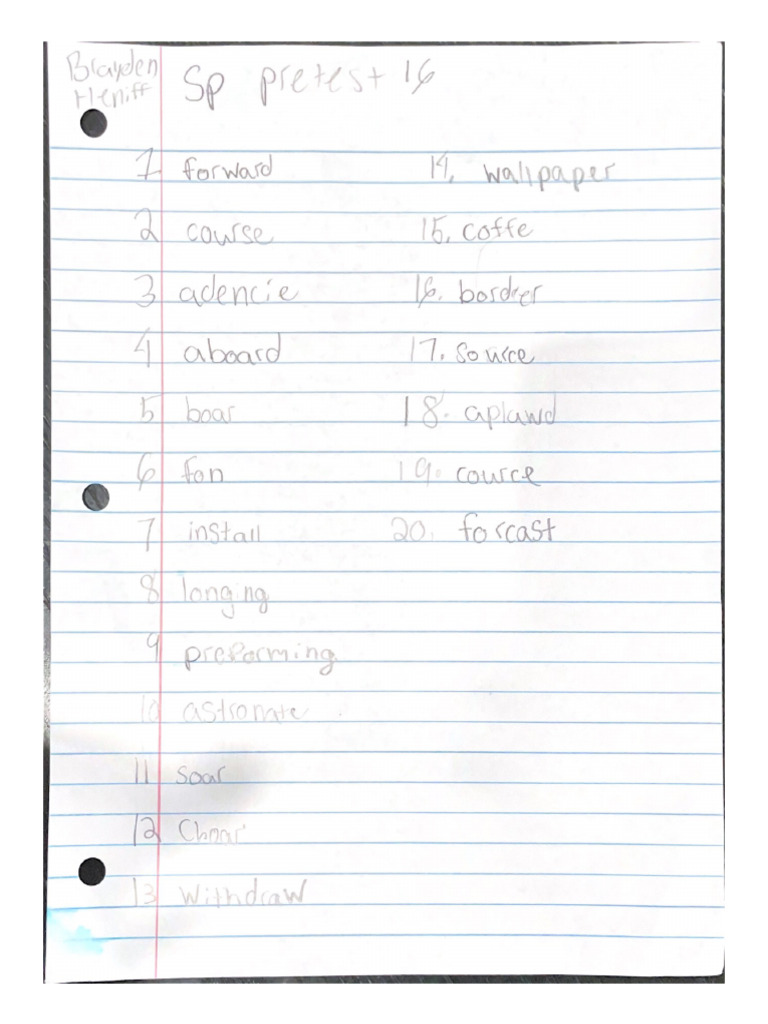 Brayden
Heniff
Sp pretest 16
1 forward
2 course
3 adencie
4 aboard
5 boar
6 fon
7 install
8 longing
9 preforming
10 astronate
11 soar
12 Choar
13 withdraw
14. wallpaper
15. coffe
16. bordrer
17. source
18. aplawd
19. cource
20. forcast